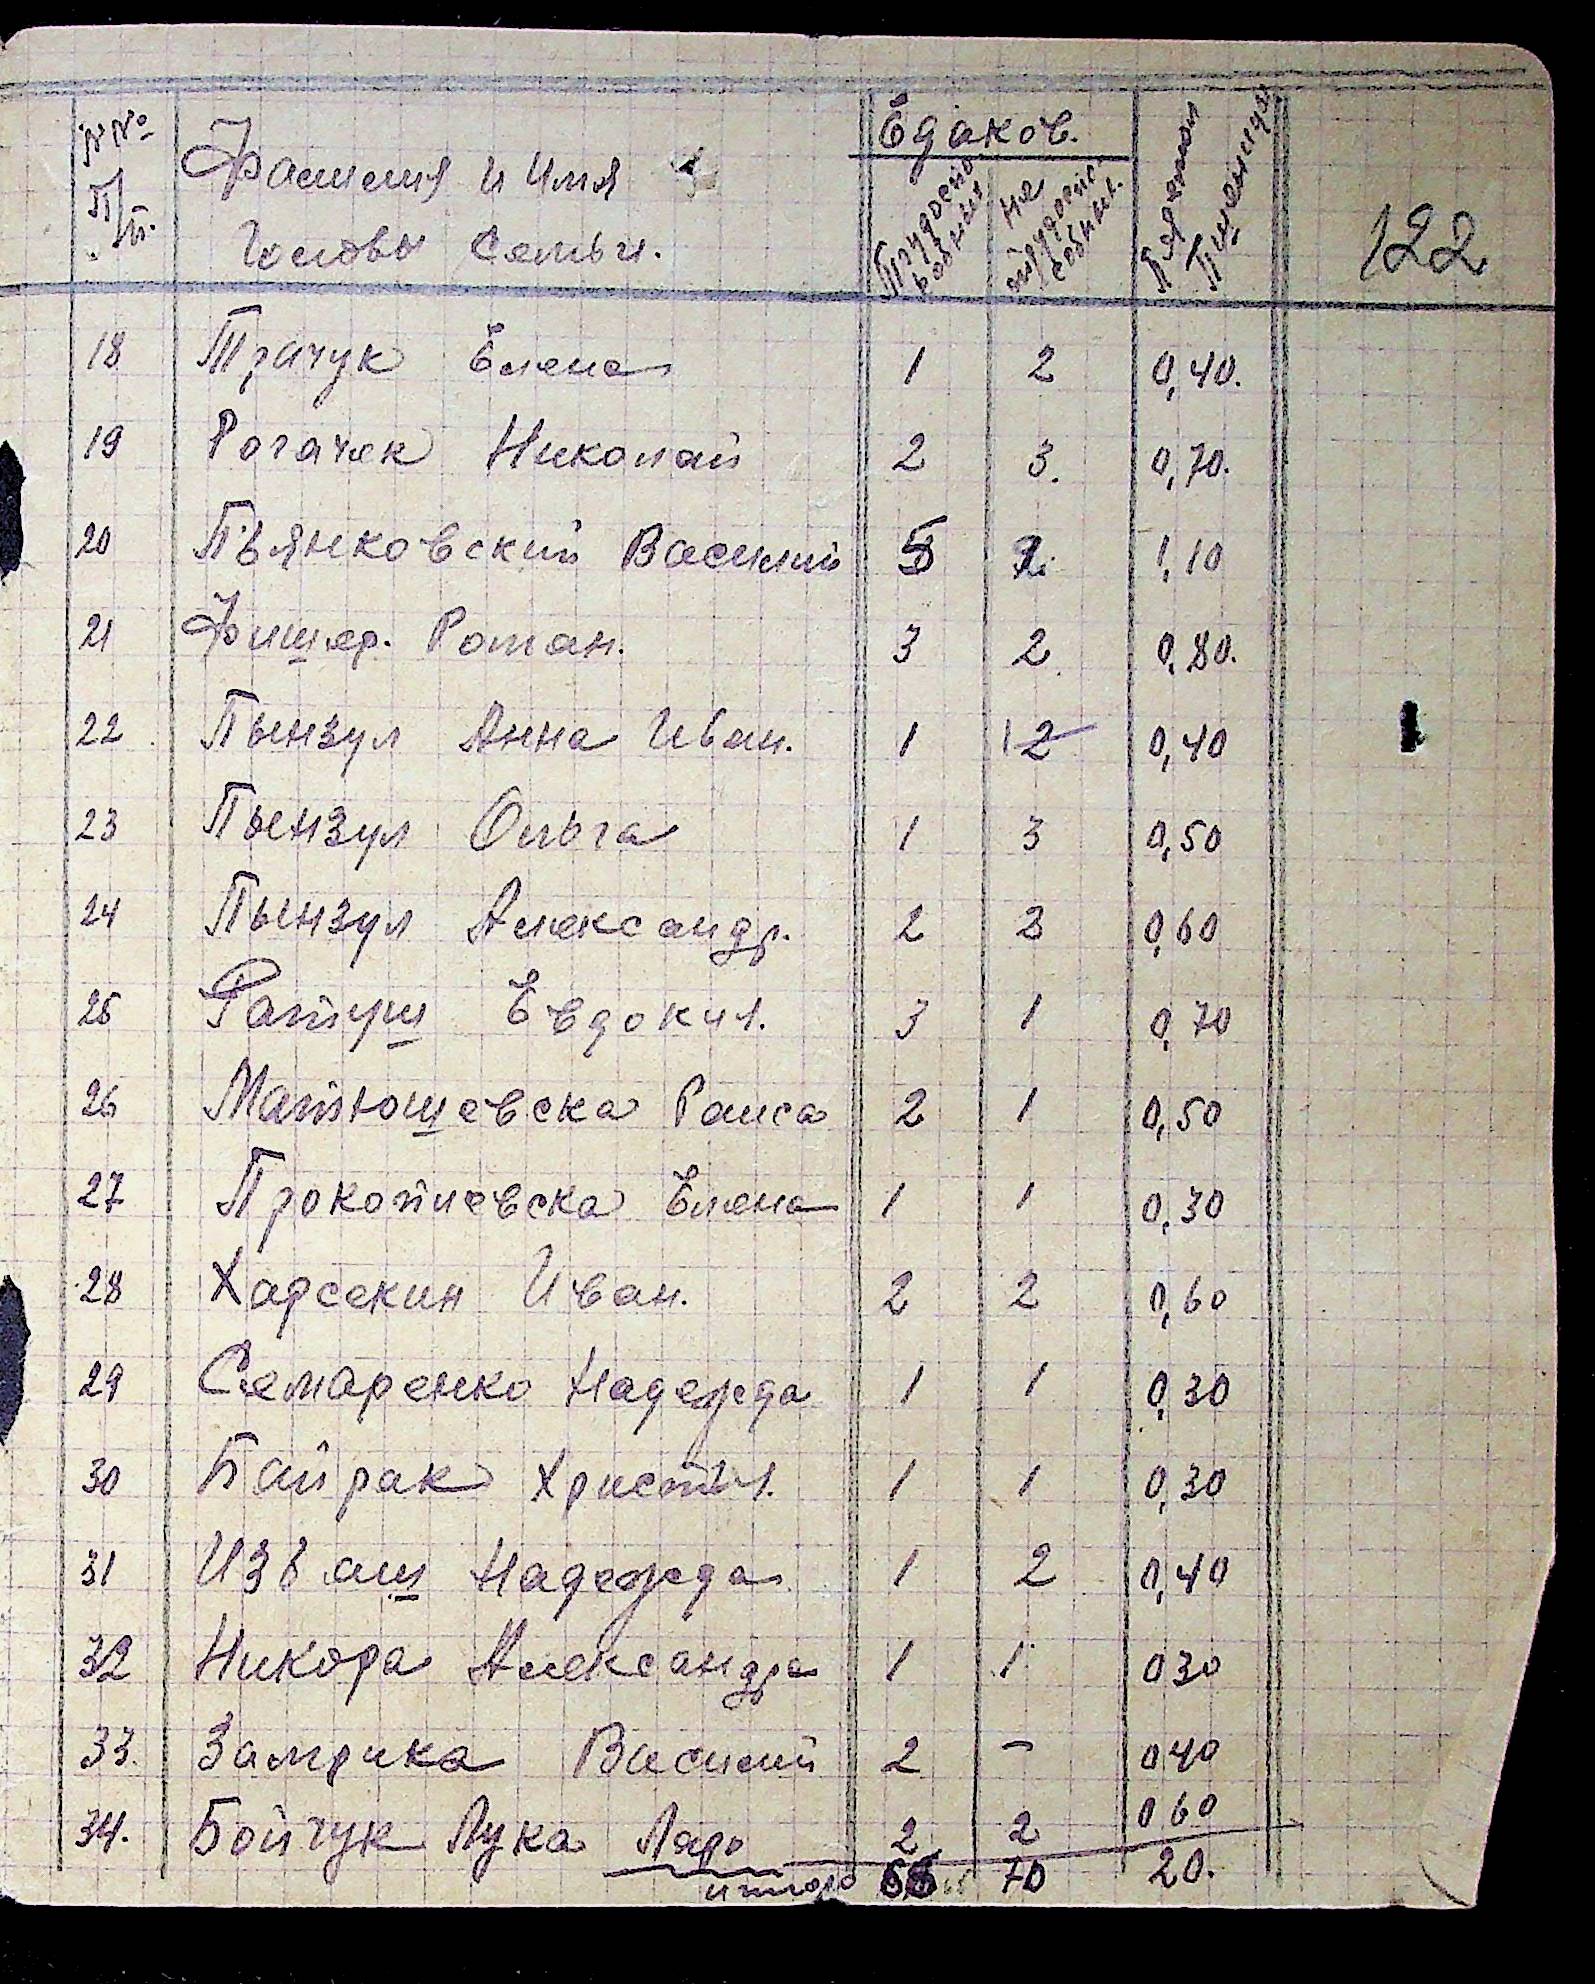 №№ п/п. Фамилия и Имя Головы Семьи. Едаков. Трудоспособных не трудоспособных.
122
18 Трачук Елена 1 2 0,40.
19 Рогачек Николай 2 3. 0,70.
20 Пьянковский Василий 5 1,10
21 Фишер. Роман. 3 2. 0,80.
22 Пынзул Анна Иван. 1 1 2 0,40
23 Пынзул Ольга 1 3 0,50
24 Пынзул Александр. 2 2 0,60
25 Ратуш Евдокия. 3 1 0,70
26 Матюшевска Раиса 2 1 0,50
27 Прокопиевска Елена 1 1 0,30
28 Хадсекин Иван. 2 2 0,60
29 Семаренко Надежда 1 1 0,30
30 Байрак Христия. 1 1 0,30
31 Изваш Надежда 1 2 0,40
32 Никора Александра 1 1 0 30
33. Замрика Василий 2 – 0 40
34. Бойчук Лука 2 2 0 60
итого 70 20.